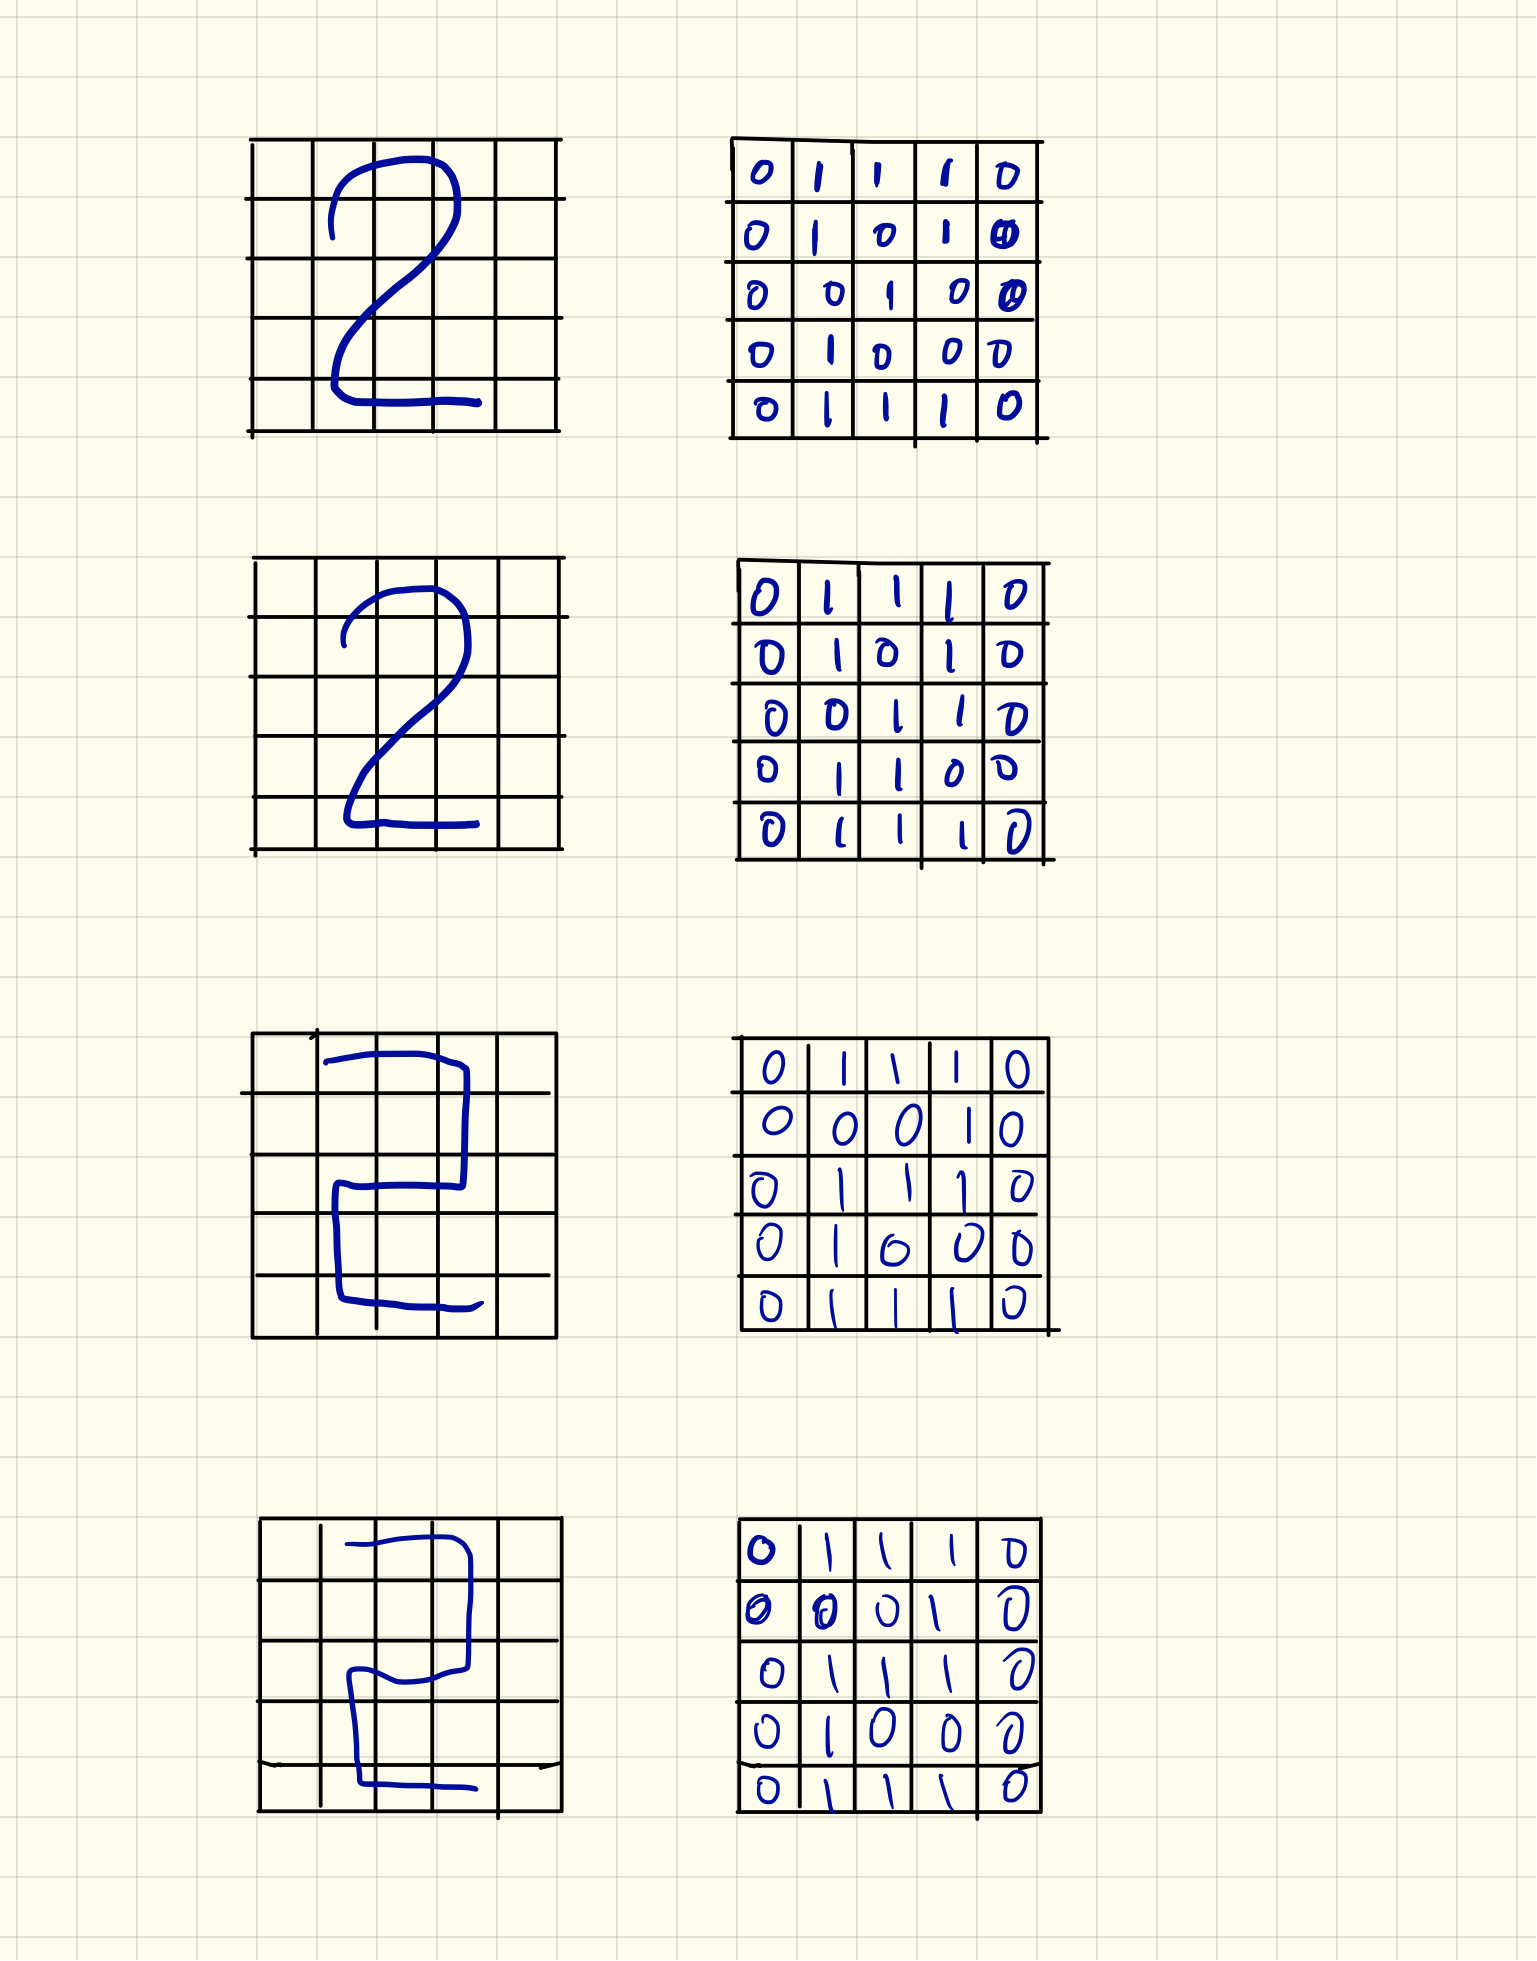 2
0 1 1 1 0
0 1 0 1 0
0 0 1 0 0
0 1 0 0 0
0 1 1 1 0
2
0 1 1 1 0
0 1 0 1 0
0 0 1 1 0
0 1 1 0 0
0 1 1 1 0
2
0 1 1 1 0
0 0 0 1 0
0 1 1 1 0
0 1 0 0 0
0 1 1 1 0
2
0 1 1 1 0
0 0 0 1 0
0 1 1 1 0
0 1 0 0 0
0 1 1 1 0